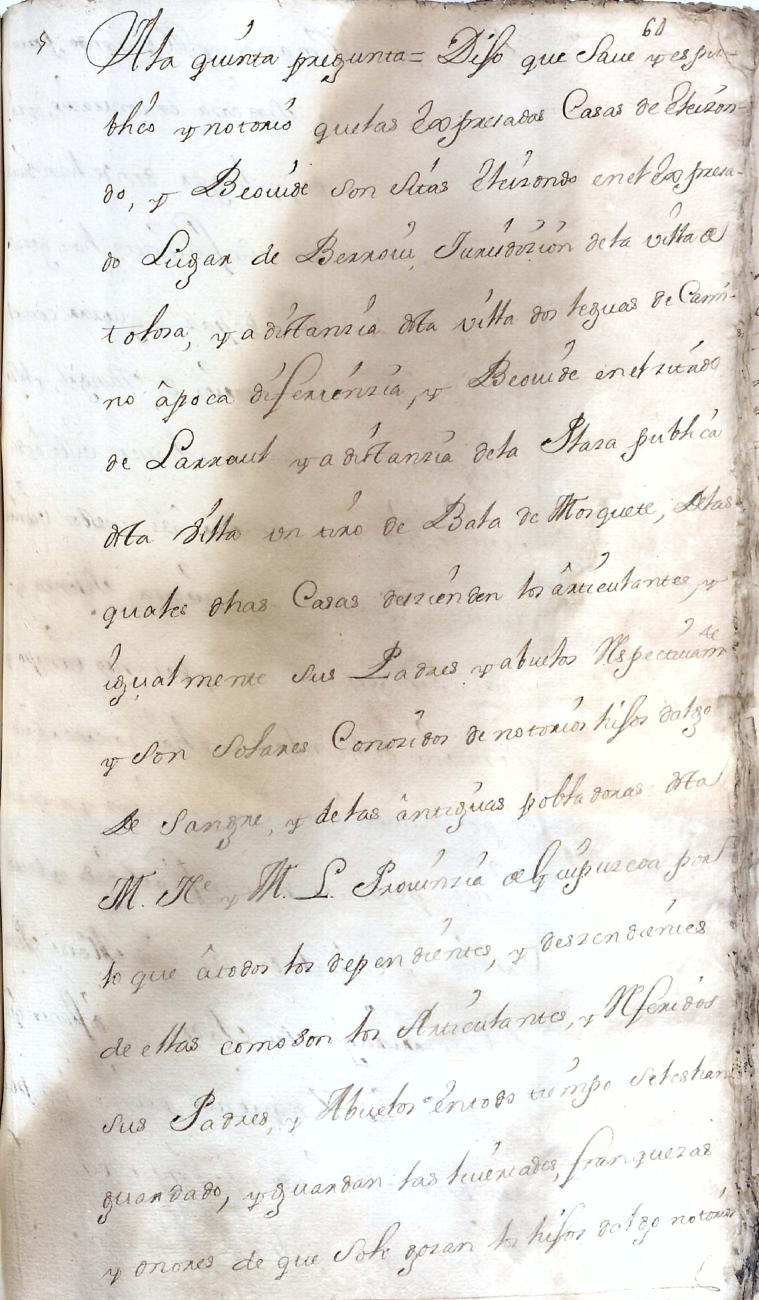 60
5 A la quinta pregunta = Dijo que Save y es pu-
blico y notorio que las expresadas Casas de Eleizon-
do, y Beovide son sitas Eleizondo en el expresa-
do Lugar de Berrovi, Jurisdizion de la villa de
tolosa, y a distanzia dela villa dos leguas de Cami-
no â poca diferienzia, y Beovide en el
de Larraul y a distanzia dela Plaza publica
dela villa un tiro de Bala de Mosquete, Delas
quales dhas Casas deszienden los ârticulantes, y
igualmente sus Padres y abuelos Respectivamte
y son solares Conozidos de notorios hijos dalgo
de Sangre, y delas ântiguas pobladoras dela
M. Ne y M. L. Provinzia de Guipuzcoa por
lo que âtodos los dependientes, y deszendientes
de ellas como son los Articulantes, y Referidos
sus Padres, y Abuelos en todo tiempo seles han
guardado, y guardan las livertades, franquezas
y onores de que Solo gozan los hijos dalgo notorios